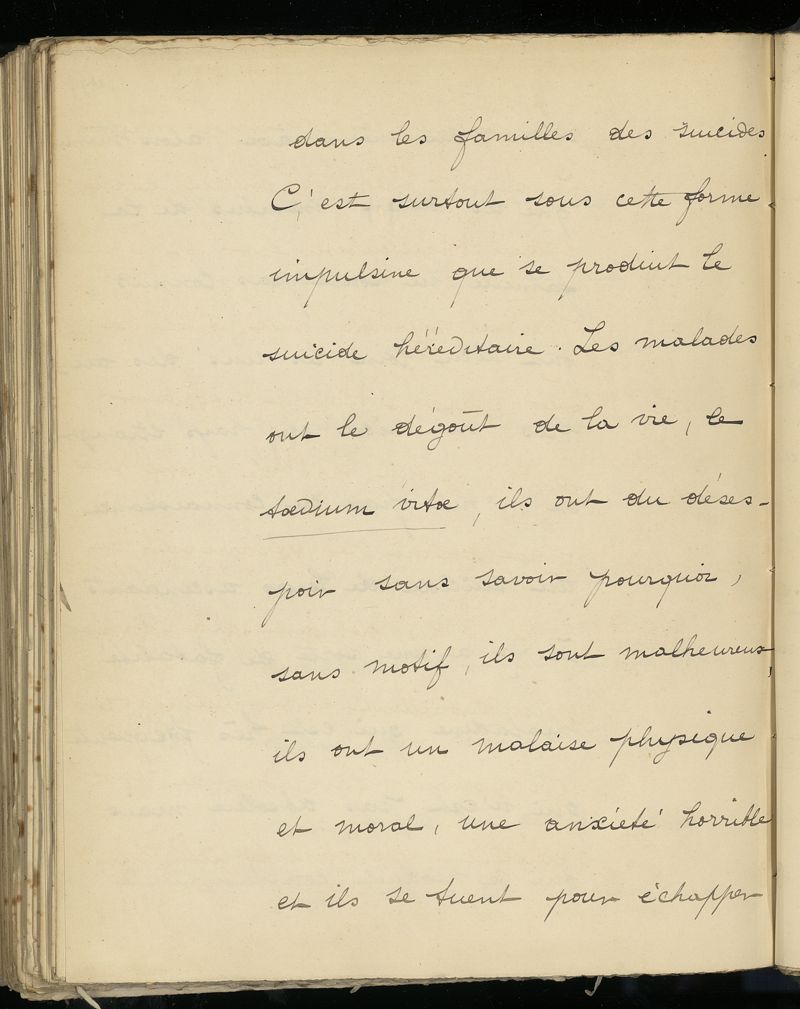 dans les familles des suicides.
C'est surtout sous cette forme
impulsive que se produit le
suicide héréditaire. Les malades
ont le dégoût de la vie, le
tædium vitæ, ils ont du déses-
poir sans savoir pourquoi,
sans motif, ils sont malheureux,
ils ont un malaise physique
et moral, une anxiété horrible
et ils se tuent pour échapper